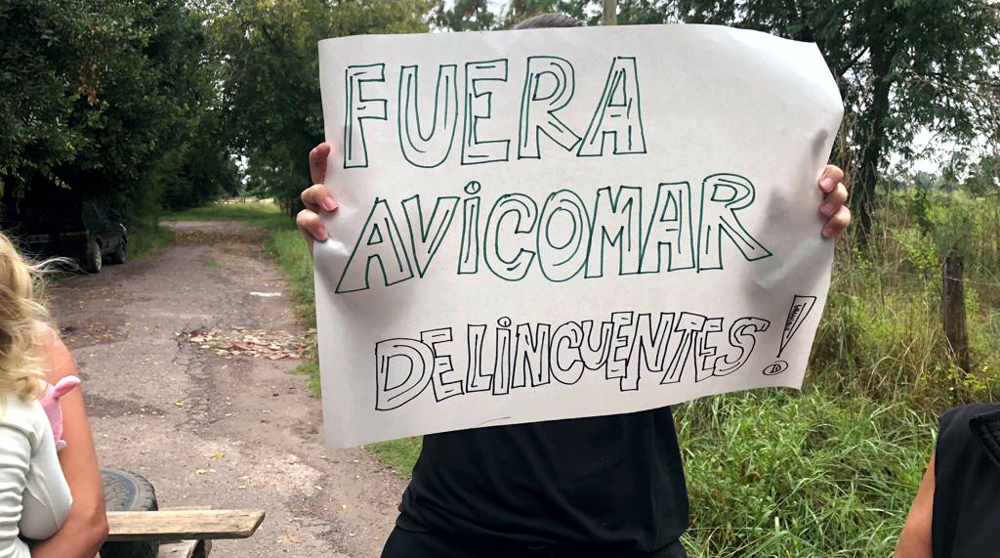 FUERA
AViCOMAR
DELiNCUENTES!